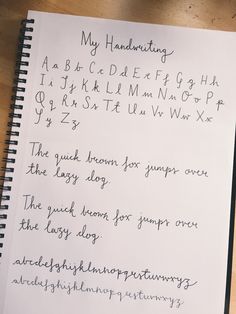 My Handwriting
Aa Bb Cc Dd Ee Ff Gg Hh
Ii Jj Kk Ll Mm Nn Oo Pp
Qq Rr Ss Tt Uu Vv Ww Xx
Yy Zz
The quick brown fox jumps over
the lazy dog.
The quick brown fox jumps over
the lazy dog.
abcdefghijklmnopqrstuvwxyz
abcdefghijklmnopqrstuvwxyz